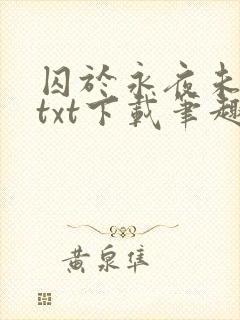 囚於永夜未
txt下載筆趣
黄泉隼